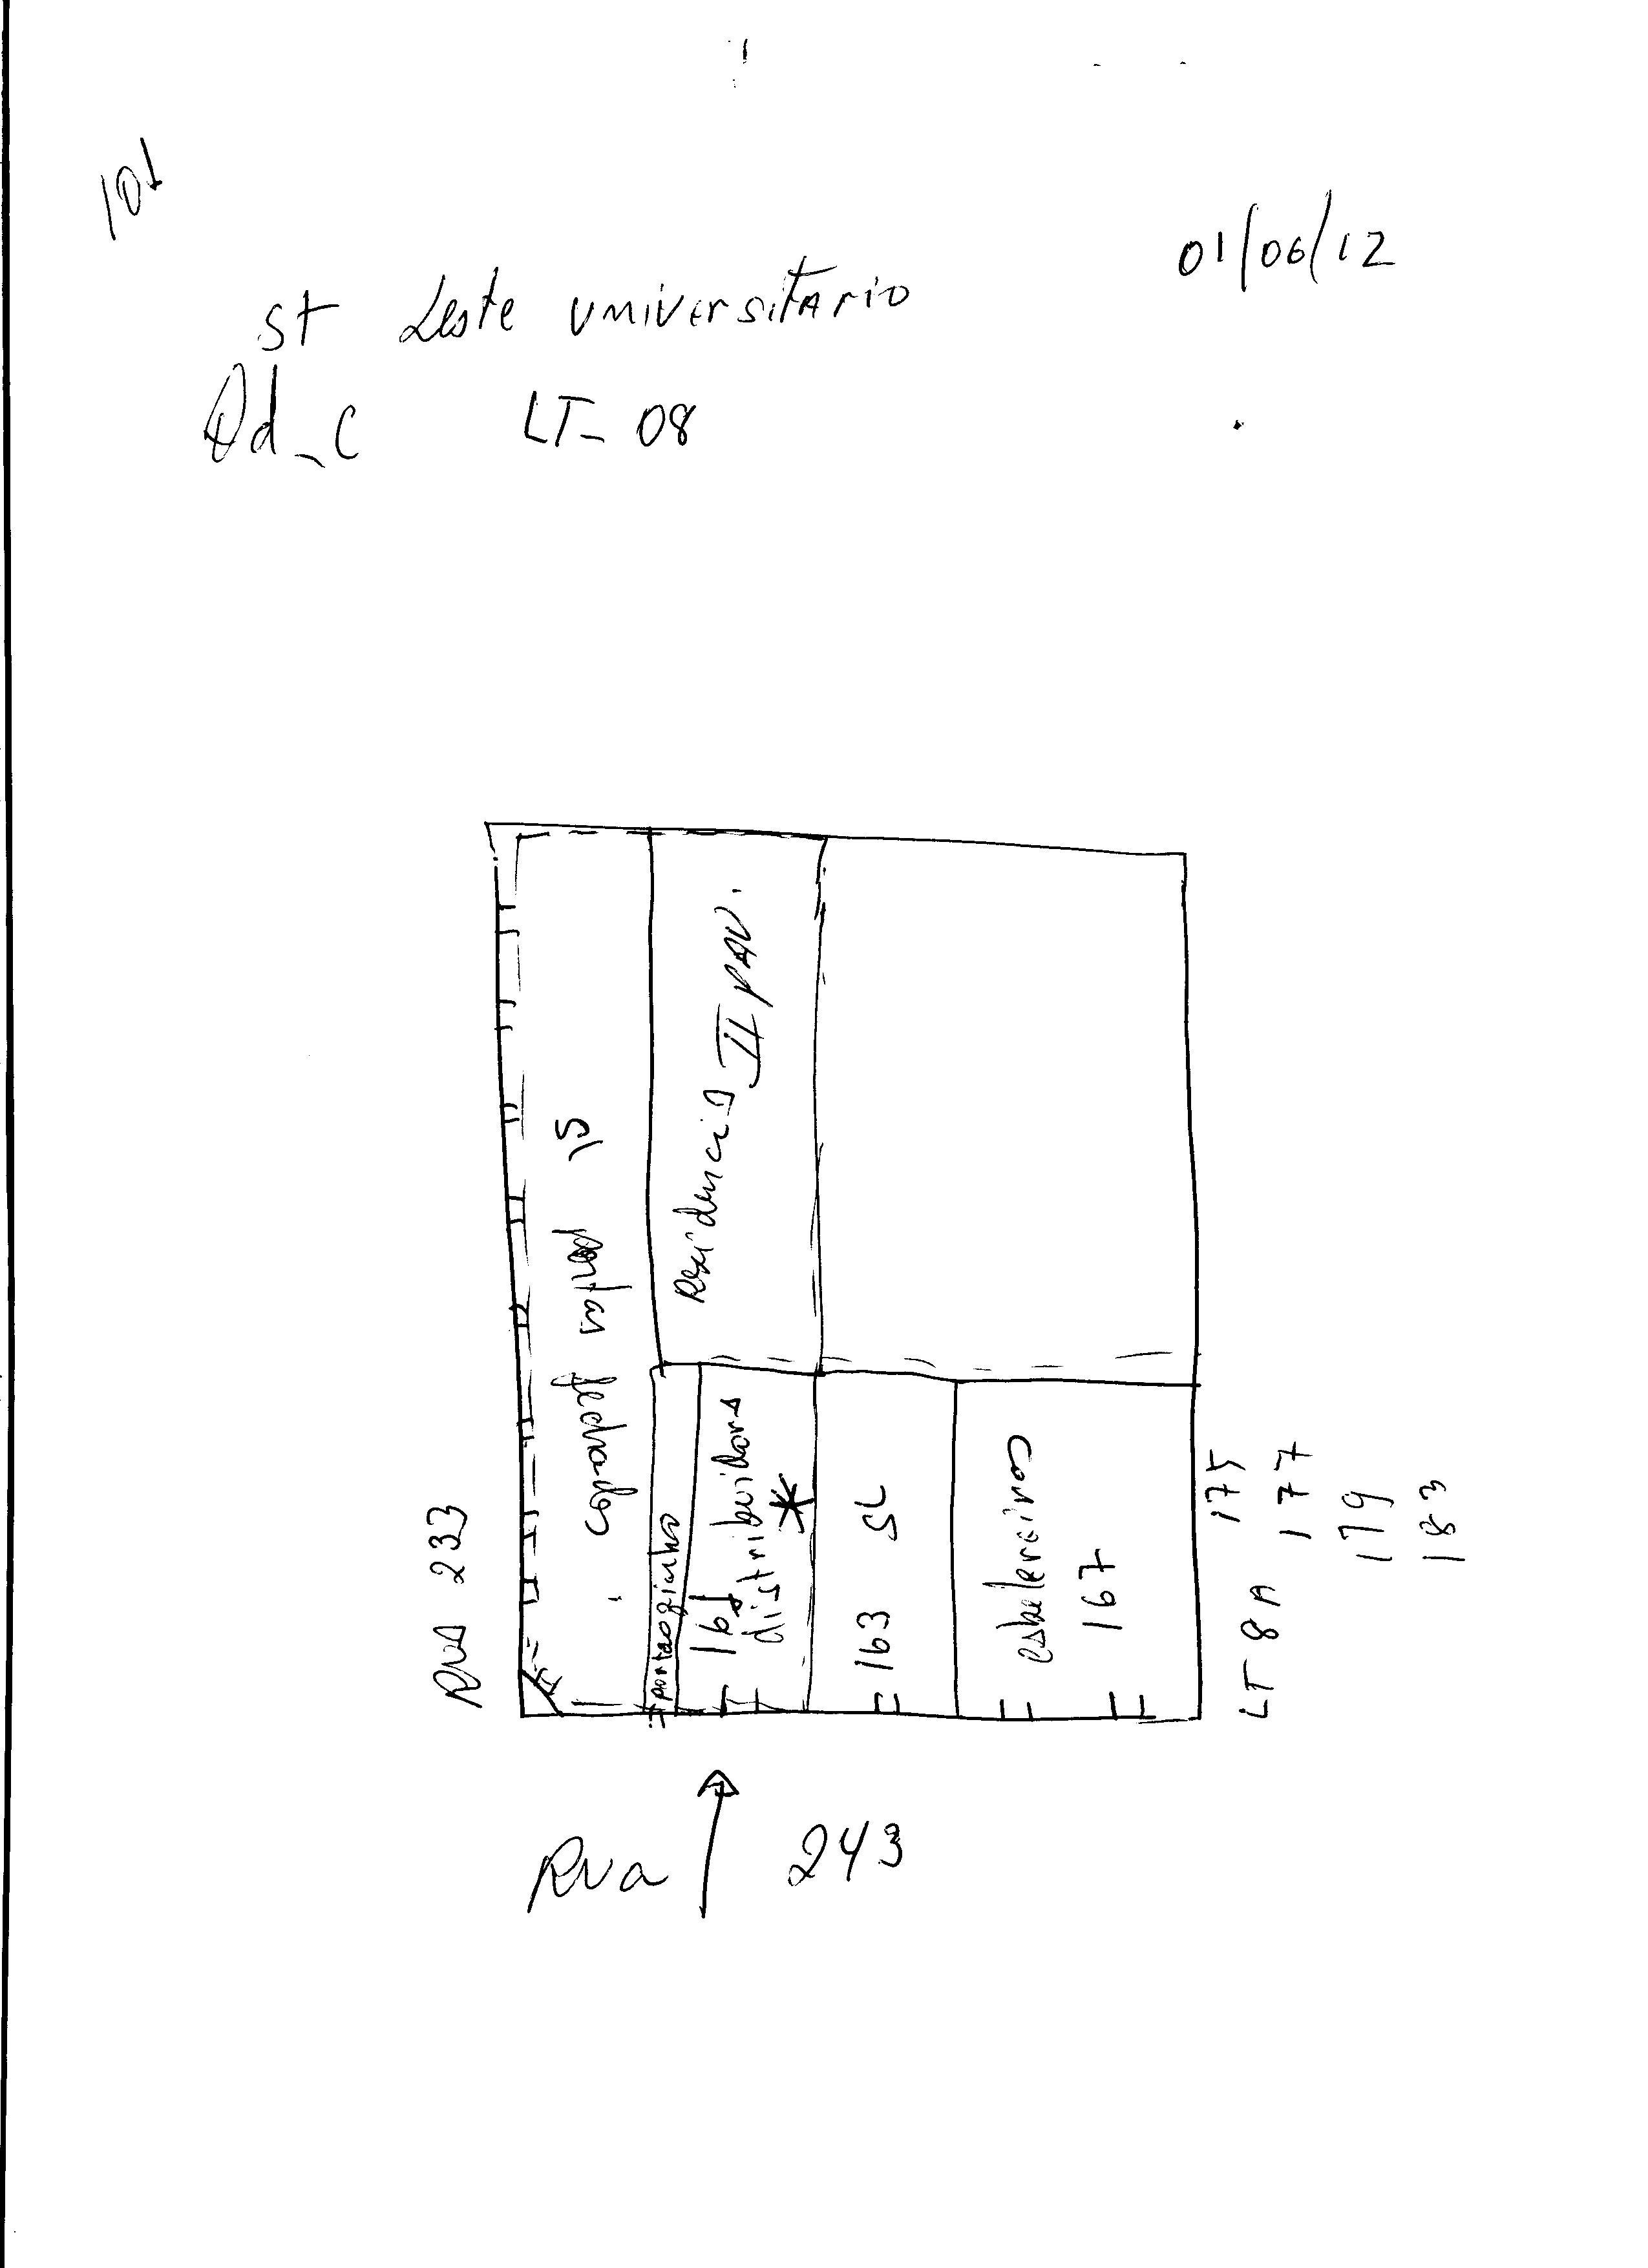 101
01/06/12
St Leste universitario
Qd_C LT_ 08
Rua 233
portas 15
Residencia II PAV.
portaozinho
161
distribuidora
*
163 SL
cabeleireiros
167
LT 8A 175
177
179
183
Rua 243